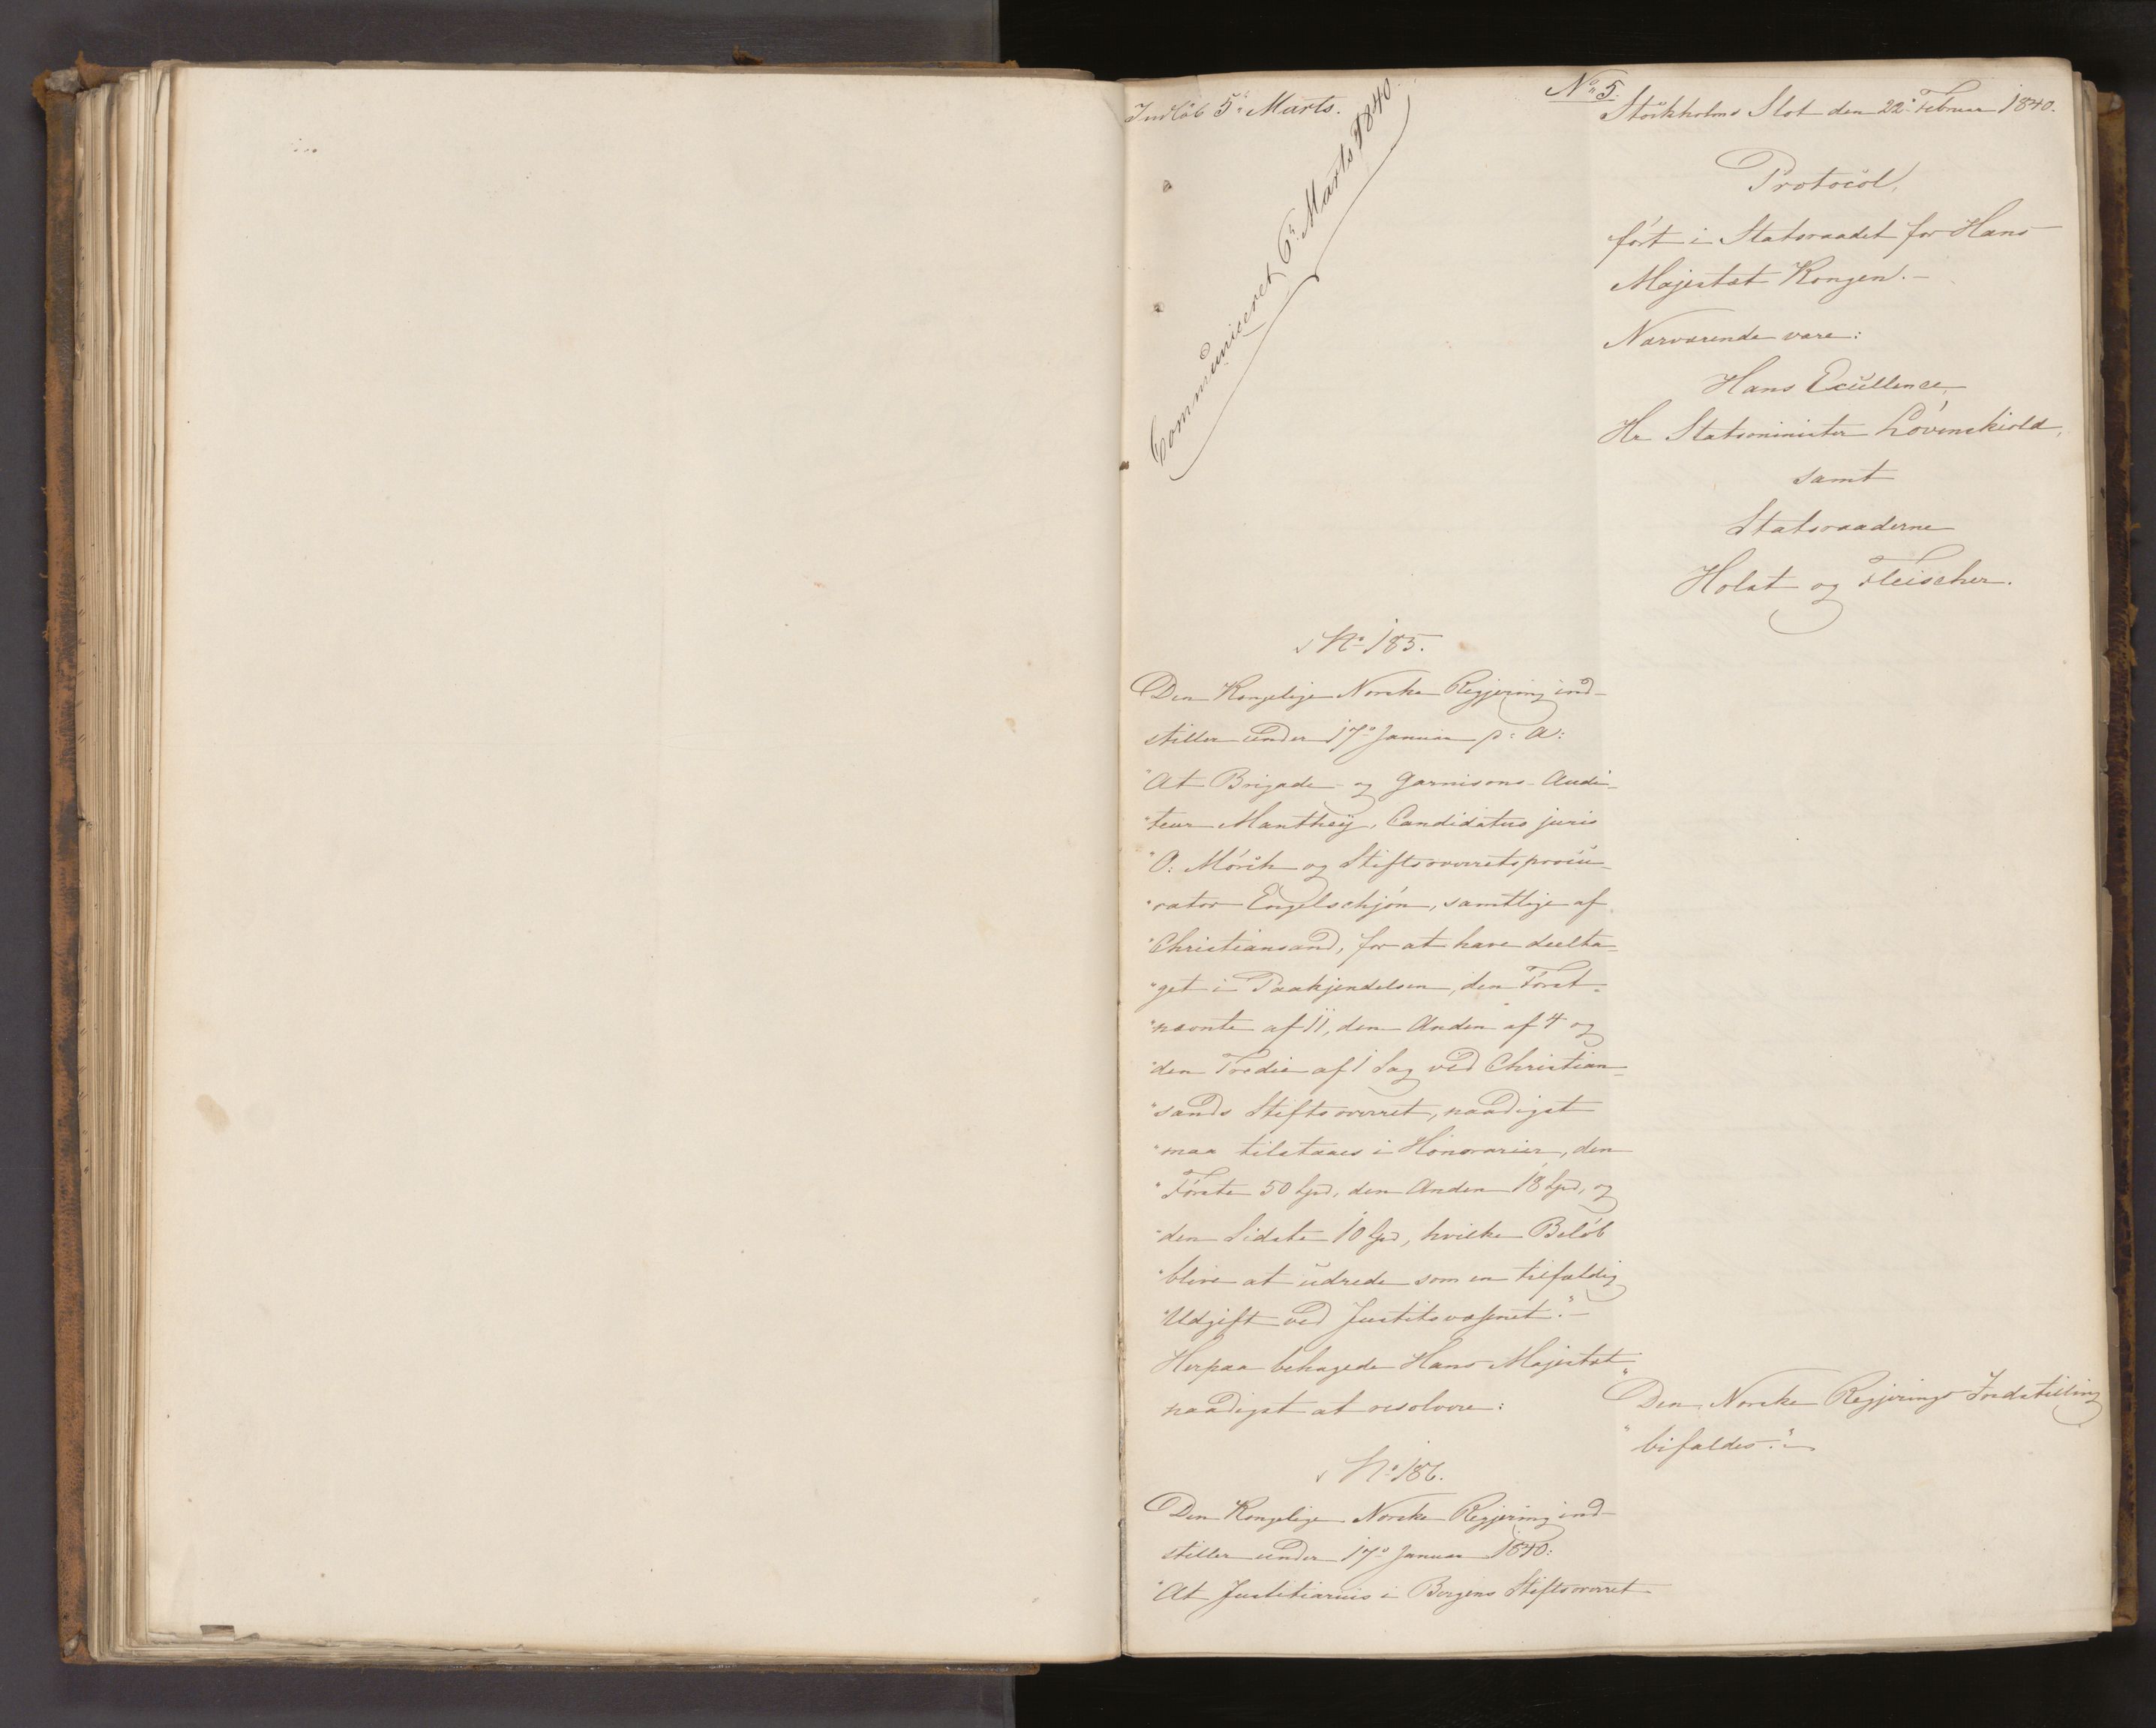 Indløb 5te Marts.
Communiceret 6te Marts 1840.
No 5.
Stockholms Slot den 22de Februar 1840.
Protocol,
ført i Statsraadet for Hans
Majestæt Kongen.-
Nærværende vare:
Hans Excellence,
Hr Statsminister Løvenskiold,
samt
Statsraaderne
Holst og Fleischer.
No 185.
Den Kongelige Norske Regjering ind-
stiller under 17de Januar p: A:
"At Brigade- og Garnisons-Audi-
"teur Manthey, Candidatus juris
"O: Mørch og Stiftsoverretsprocu-
"rator Engelschjøn, samtlige af
"Christiansand, for at have deelta-
"get i Paakjendelsen, den Først-
"nævnte af 11, den Anden af 4 og
"den Tredie af 1 Sag ved Christian-
"sands Stiftsoverret, naadigst
"maa tilstaaes i Honorarier, den
"Første 50 Spd, den Anden 18 Spd, og
"den Sidste 10 Spd, hvilke Beløb
"blive at udrede som en tilfældig
"Udgift ved Justitsvæsenet."-
Herpaa behagede Hans Majestæt
naadigst at resolvere:
"Den Norske Regjerings Indstilling
"bifaldes."-
No 186.
Den Kongelige Norske Regjering ind-
stiller under 17de Januar 1840:
"At Justitiarius i Bergens Stiftsoverret